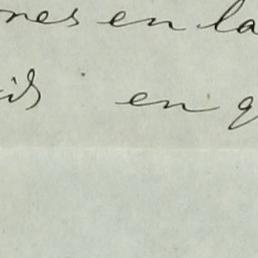 ones en la
id en q